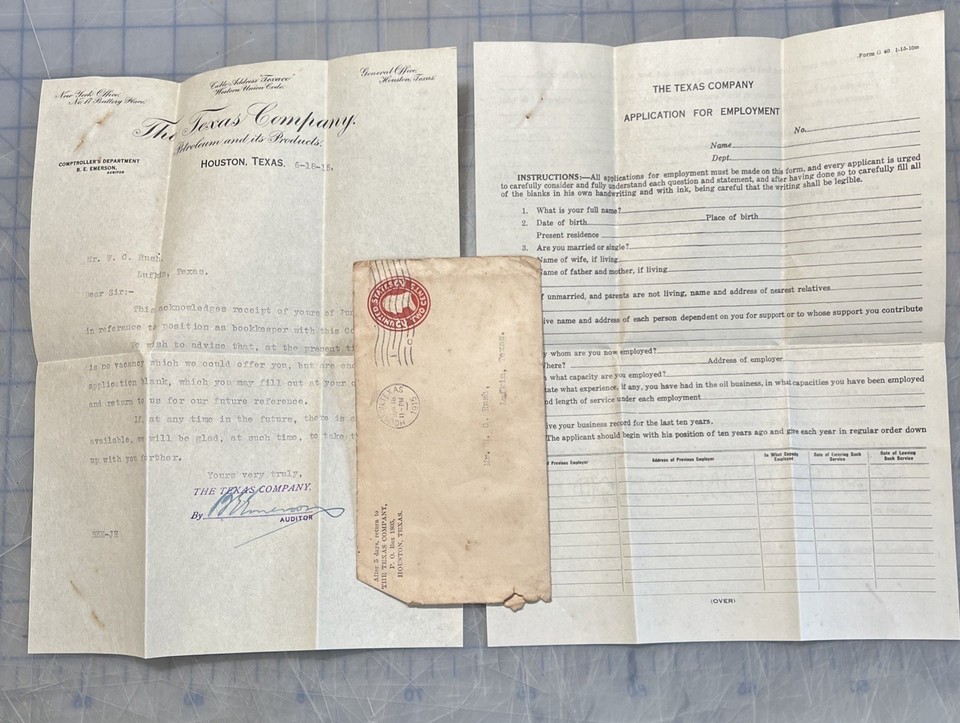 New York Office,
No. 17 Battery Place.
Cable Address "Texaco"
Western Union Code.
General Office,
Houston, Texas.
The Texas Company.
Petroleum and its Products.
COMPTROLLER'S DEPARTMENT
B. E. EMERSON,
AUDITOR
HOUSTON, TEXAS.
Lufkin, Texas.
Dear Sir:-
This acknowledges receipt of yours of
in reference to position as bookkeeper with this
to advise that, at the present
is no vacancy which we could offer you, but are
application blank, which you may fill out at your
and return to us for our future reference.
If at any time in the future, there is
available, we will be glad, at such time, to take
up with you further.
Yours very truly,
THE TEXAS COMPANY.
By B E Emerson
AUDITOR
UNITED STATES
TWO CENTS
HOUSTON, TEXAS
1915
Lufkin, Texas.
After 5 days, return to
THE TEXAS COMPANY,
P. O. Box 1805,
HOUSTON, TEXAS.
THE TEXAS COMPANY
APPLICATION FOR EMPLOYMENT
No.
Name
Dept.
INSTRUCTIONS:—All applications for employment must be made on this form, and every applicant is urged
to carefully consider and fully understand each question and statement, and after having done so to carefully fill all
of the blanks in his own handwriting and with ink, being careful that the writing shall be legible.
1. What is your full name?
2. Date of birth Place of birth
Present residence
3. Are you married or single?
Name of wife, if living
Name of father and mother, if living
If unmarried, and parents are not living, name and address of nearest relatives
give name and address of each person dependent on you for support or to whose support you contribute
By whom are you now employed?
Where? Address of employer
In what capacity are you employed?
State what experience, if any, you have had in the oil business, in what capacities you have been employed
and length of service under each employment
Give your business record for the last ten years.
The applicant should begin with his position of ten years ago and give each year in regular order down
Previous Employer Address of Previous Employer In What Capacity Employed Date of Entering Such Service Date of Leaving Such Service
(OVER)